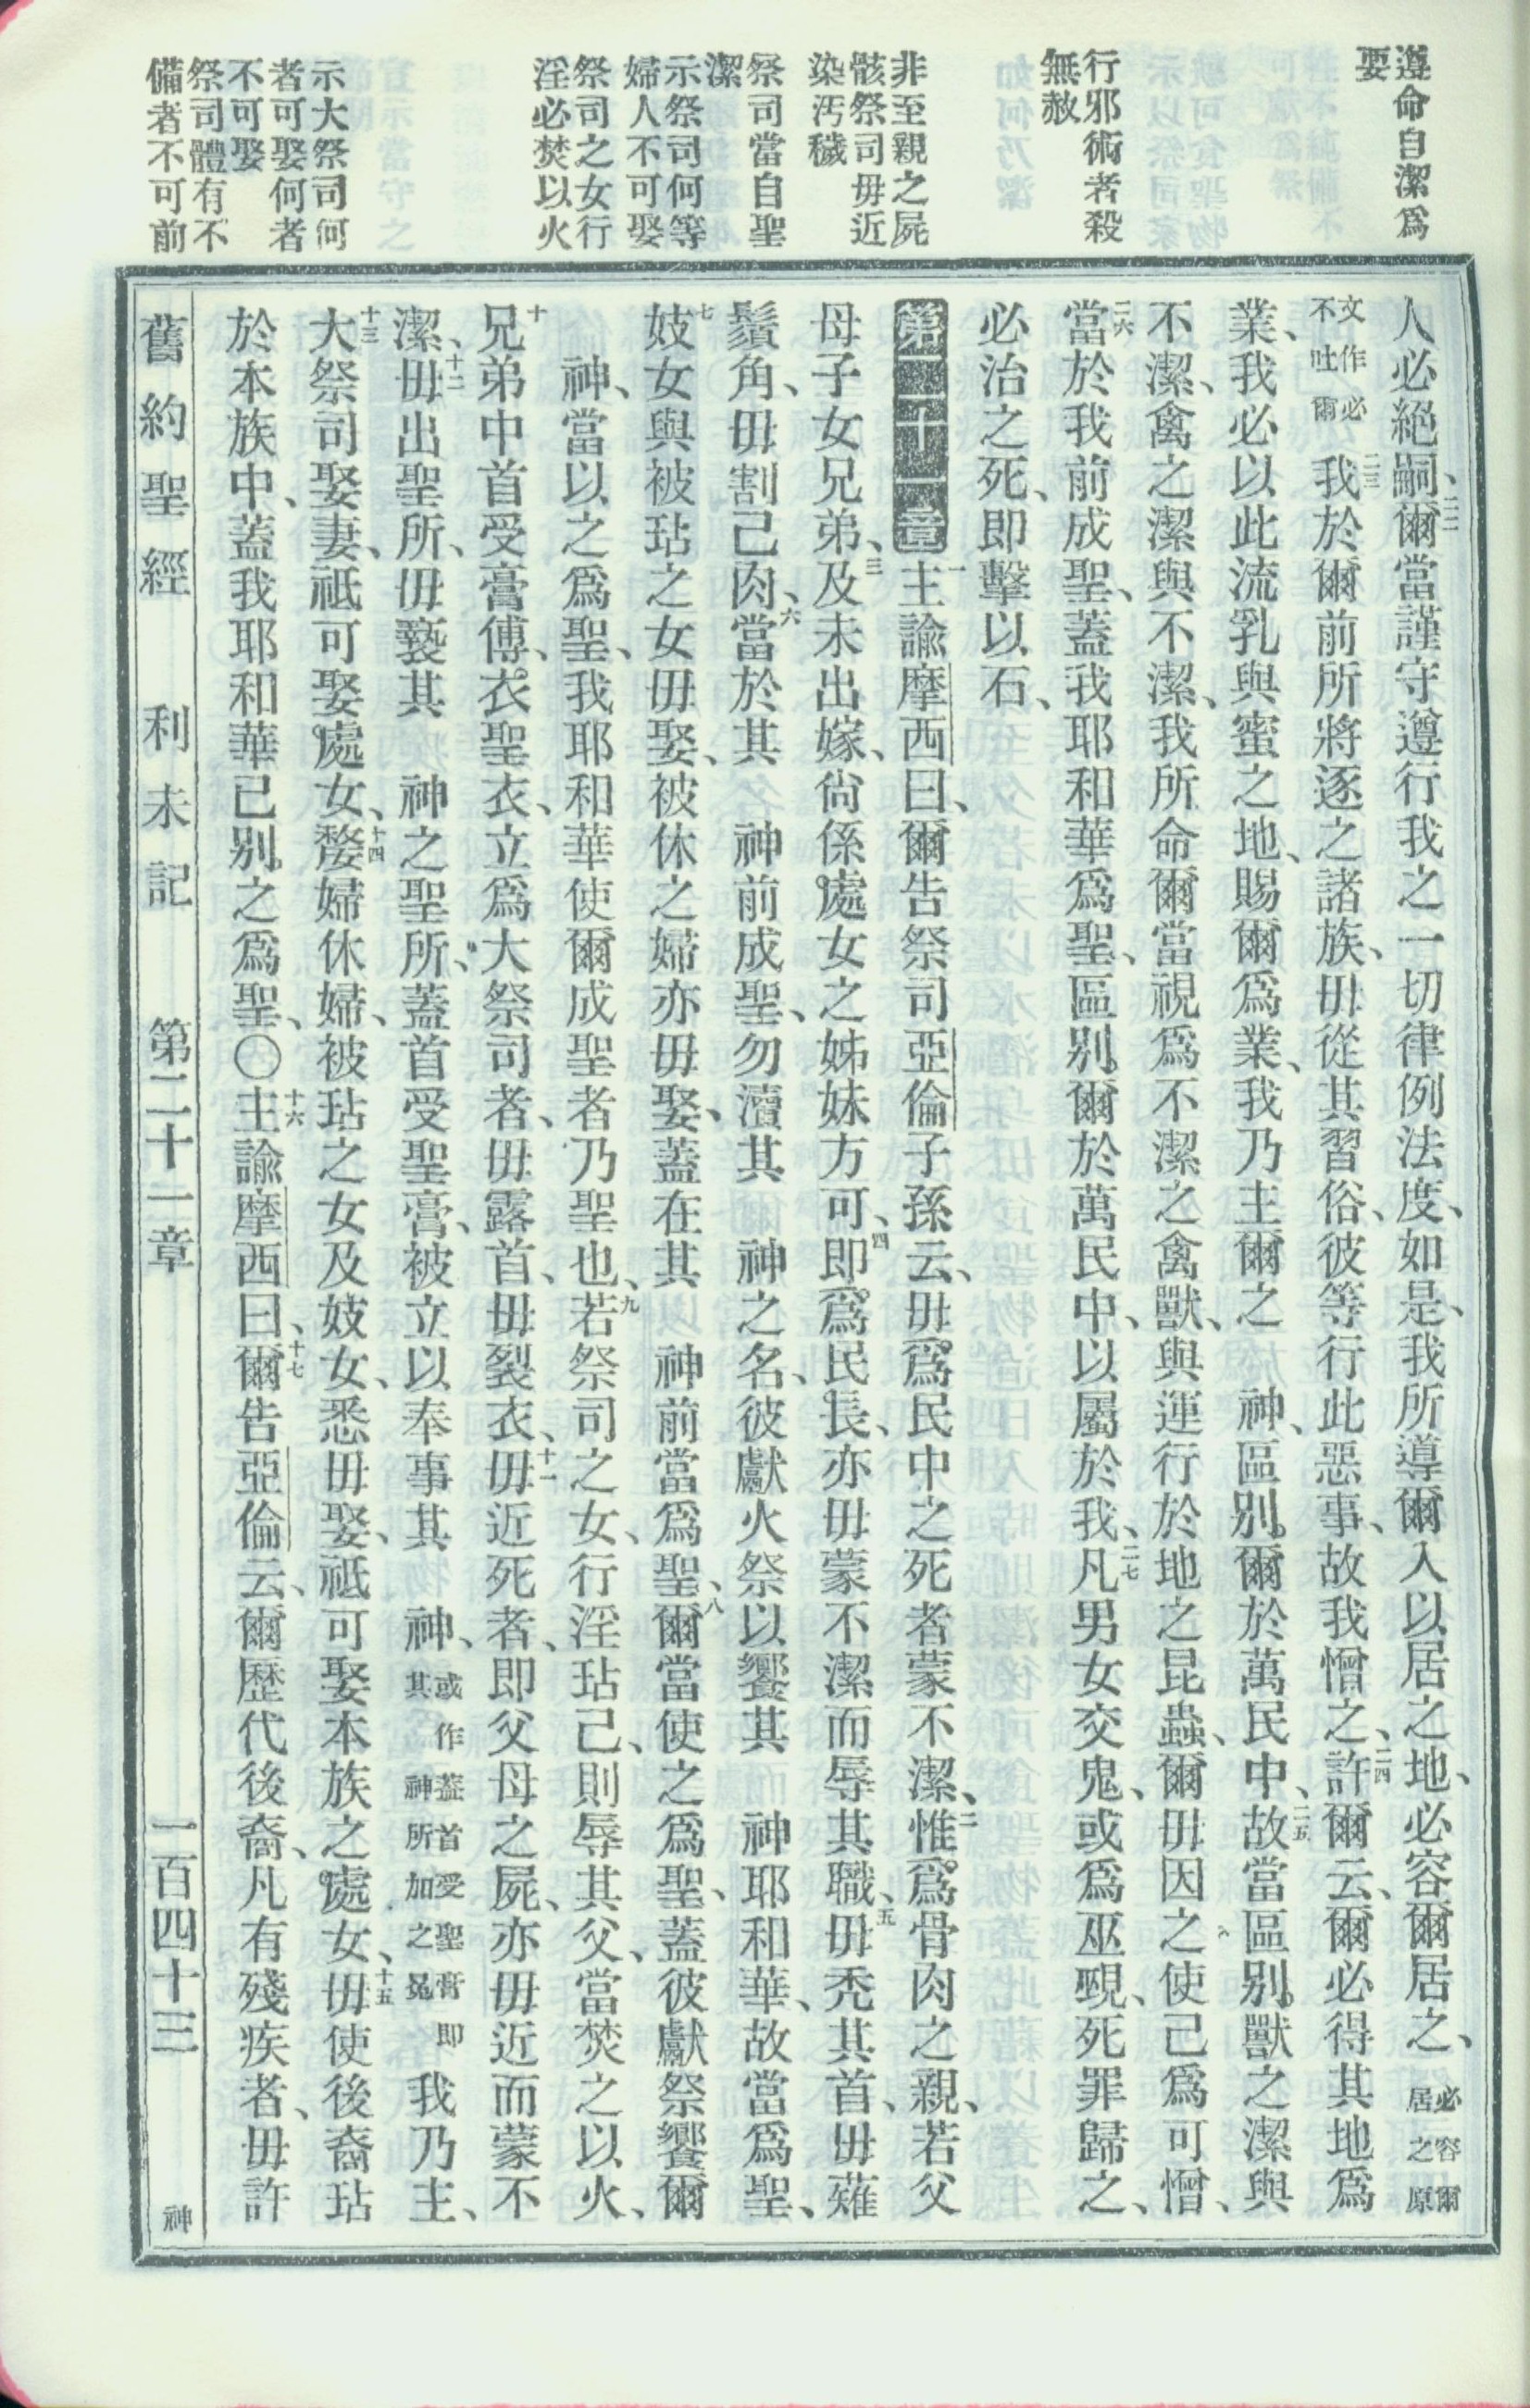 遵命自潔爲
要
行邪術者殺
無赦
非至親之屍
骸祭司毋近
染汚穢
祭司當自聖
潔
示祭司何等
婦人不可娶
祭司之女行
淫必焚以火
示大祭司何
者可娶何者
不可娶
祭司體有不
備者不可前
人必絕嗣、二二爾當謹守遵行我之一切律例法度、如是、我所導爾入以居之地、必容爾居之、必容爾居之原
文作必不吐爾二三我於爾前所將逐之諸族、毋從其習俗、彼等行此惡事、故我憎之、二四許爾云、爾必得其地爲
業、我必以此流乳與蜜之地、賜爾爲業、我乃主爾之 神、區別爾於萬民中、二五故當區別獸之潔與
不潔、禽之潔與不潔、我所命爾當視爲不潔之禽獸、與運行於地之昆蟲、爾毋因之使己爲可憎、
二六當於我前成聖、蓋我耶和華爲聖、區別爾於萬民中、以屬於我、二七凡男女交鬼、或爲巫覡、死罪歸之、
必治之死、即擊以石、
第二十一章 一主諭摩西曰、爾告祭司亞倫子孫云、毋爲民中之死者蒙不潔、二惟爲骨肉之親、若父
母子女兄弟、三及未出嫁、尙係處女之姊妹方可、四即爲民長、亦毋蒙不潔而辱其職、五毋禿其首、毋薙
鬚角、毋割己肉、六當於其 神前成聖、勿瀆其 神之名、彼獻火祭以饗其 神耶和華、故當爲聖、
七妓女與被玷之女毋娶、被休之婦亦毋娶、蓋在其 神前當爲聖、八爾當使之爲聖、蓋彼獻祭饗爾
神、當以之爲聖、我耶和華使爾成聖者乃聖也、九若祭司之女、行淫玷己、則辱其父、當焚之以火、
十兄弟中首受膏傅、衣聖衣、立爲大祭司者、毋露首、毋裂衣、十一毋近死者、即父母之屍、亦毋近而蒙不
潔、十二毋出聖所、毋褻其 神之聖所、蓋首受聖膏、被立以奉事其 神、或作蓋首受聖膏即其神所加之冕我乃主、
十三大祭司娶妻、祗可娶處女、十四嫠婦休婦、被玷之女及妓女、悉毋娶、祗可娶本族之處女、十五毋使後裔玷
於本族中、蓋我耶和華已別之爲聖、〇十六主諭摩西曰、十七爾告亞倫云、爾歷代後裔、凡有殘疾者、毋許
舊約聖經 利未記 第二十一章 一百四十三 神